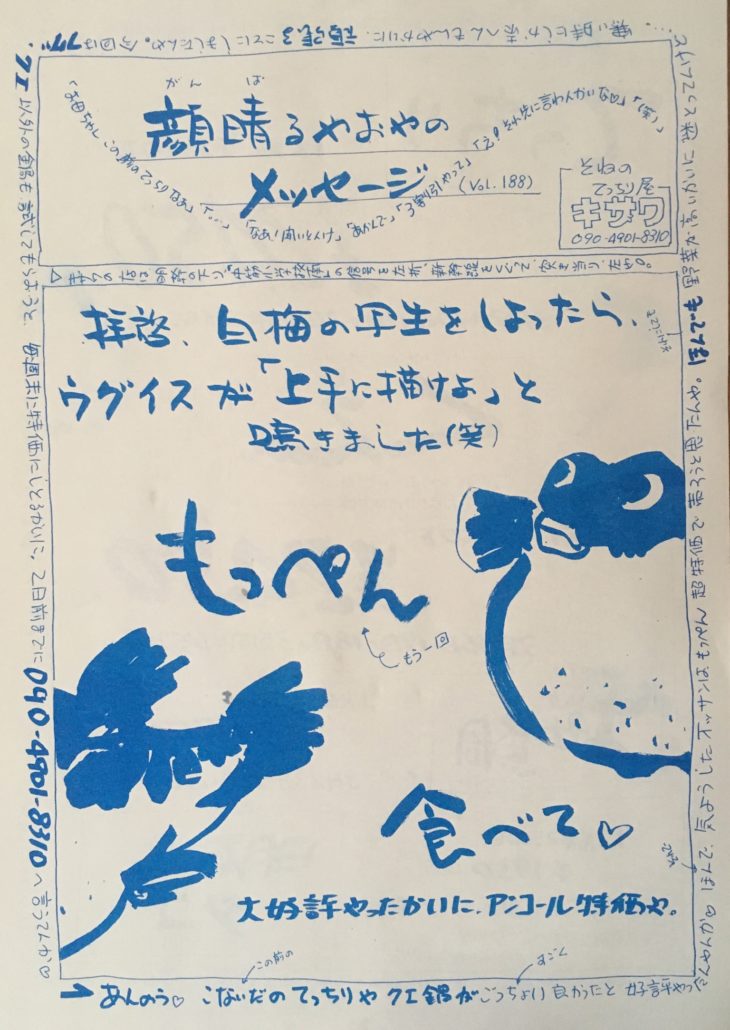 顔晴るやおやの
がんば
メッセージ
(Vol.188)
「お田ちゃん この前のてっちりなあ」「…」「なあ!聞いとんけ」「あかんで」「3割引やって」「え?それ先に言わんかいな♡」「(笑)」
それの
てっちり屋
キサワ
090-4901-8310
拝啓、白梅の写生をしよったら、
ウグイスが「上手に描けよ」と
鳴きました(笑)
もっぺん
もう一回
食べて♡
大好評やったかいに、アンコール特価や。
→ あんのう♡ こないだの てっちりや クエ鍋が ごっちょい 良かったと 好評やったんやんか♡ ほんで、気ようしたオッサンは もっぺん 超特価で 売ろうと思たんや。ほんでも 野菜が高いかいに 迷とってんけど
この前の
すごく
クエ以外の鍋も試してもらおうと、毎週末に特価にしとるかいに、2日前までに 090-4901-8310 へ言うてんか♡